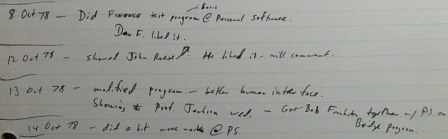 8 Oct 78 — Did Finance test program @ Personal Software.
Dan F. liked it.
12 Oct 78 — showed John. He liked it - will comment.
13 Oct 78 — modified program — better human interface.
Showing to Prof. Jackson wed. — Get Bob together w/ P.S. on
Budge program.
14 Oct 78 — did a bit more work @ P.S.